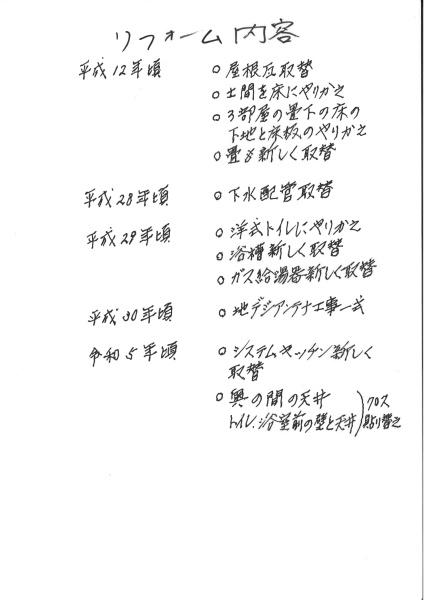 リフォーム内容
平成12年頃 ○ 屋根瓦取替
○ 土間を床にやりかえ
○ 3部屋の畳下の床の
下地と床板のやりかえ
○ 畳も新しく取替
平成28年頃 ○ 下水配管取替
平成29年頃 ○ 洋式トイレにやりかえ
○ 浴槽新しく取替
○ ガス給湯器新しく取替
平成30年頃 ○ 地デジアンテナ工事一式
令和5年頃 ○ システムキッチン新しく
取替
○ 奥の間の天井
トイレ、浴室前の壁と天井 クロス
貼り替え